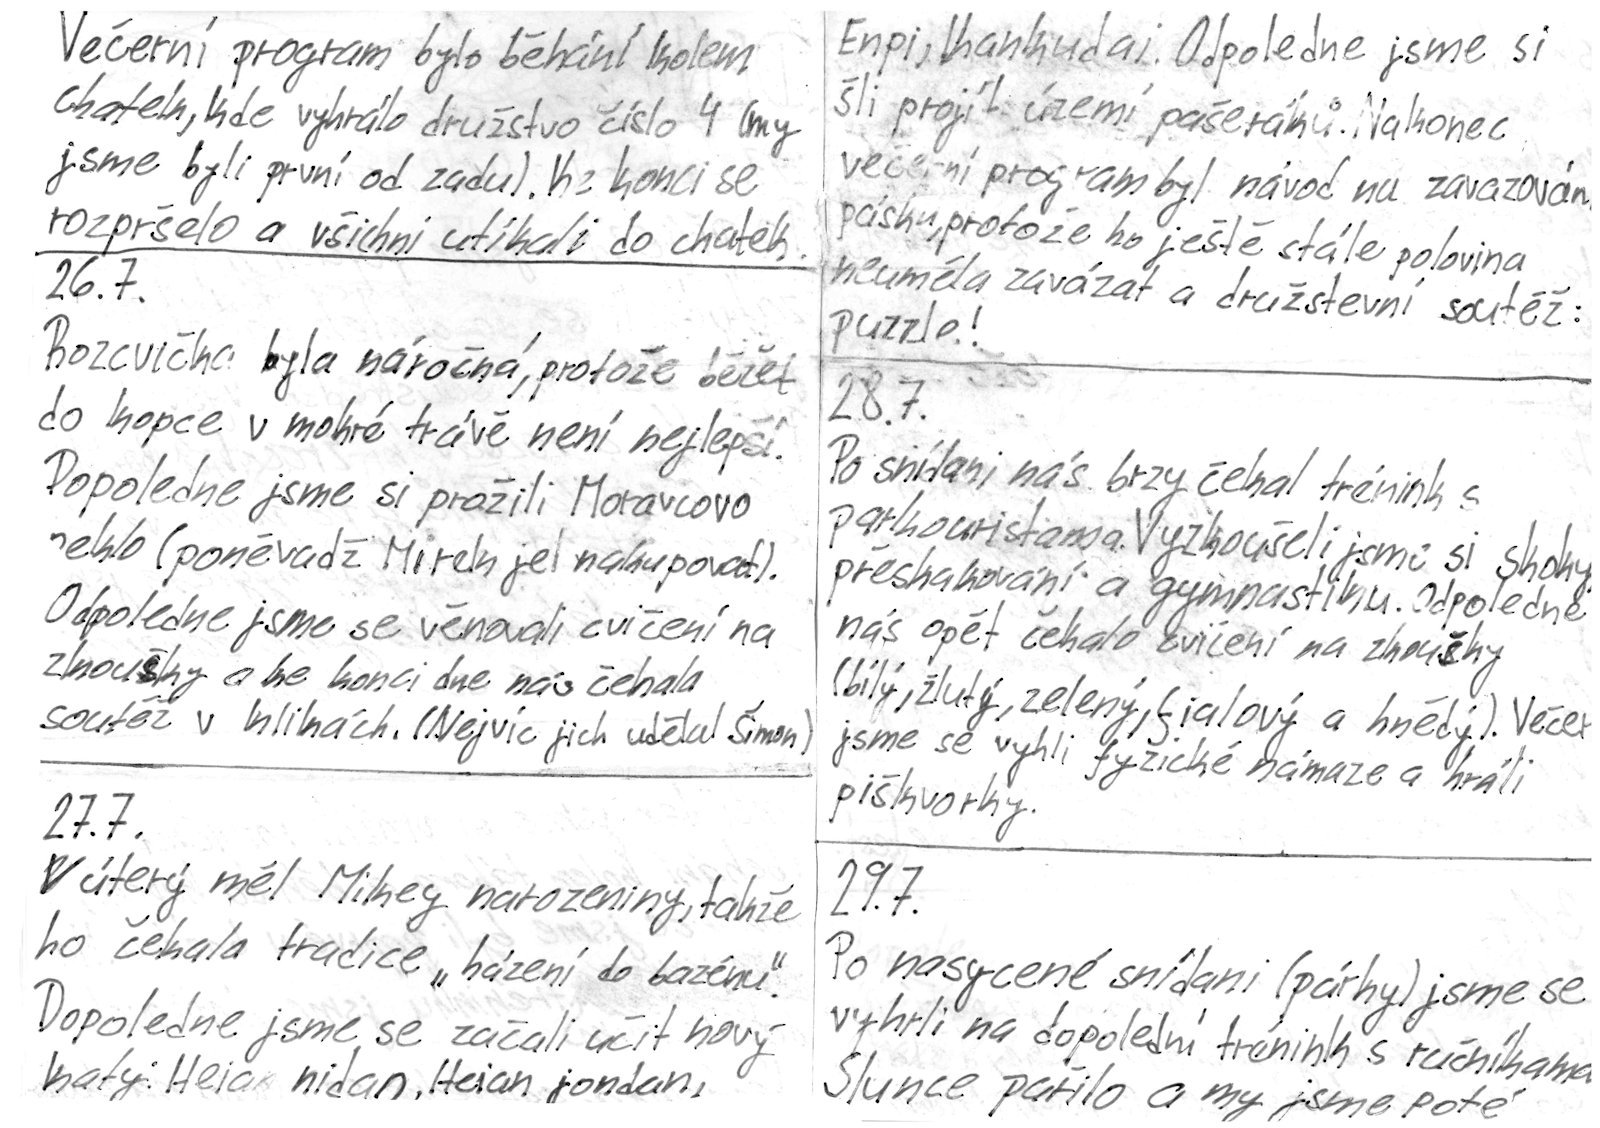 Večerní program bylo běhání kolem
chatek, kde vyhrálo družstvo číslo 4 (my
jsme byli první od zadu). Ke konci se
rozpršelo a všichni utíkali do chatek.
26.7.
Rozcvička byla náročná, protože běžet
do kopce v mokré trávě není nejlepší.
Dopoledne jsme si prožili Moravcovo
peklo (poněvadž Mirek jel nakupovat).
Odpoledne jsme se věnovali cvičení na
zkoušky a ke konci dne nás čekala
soutěž v klikách. (Nejvíc jich udělal Šimon)
27.7.
V úterý měl Milney narozeniny, takže
ho čekala tradice „házení do bazénu".
Dopoledne jsme se začali učit nový
katy: Heian nidan, Heian jondan,
Enpi, Kankudai. Odpoledne jsme si
šli projít území pašeráků. Nakonec
večerní program byl návod na zavazován
pásku, protože ho ještě stále polovina
neuměla zavázat a družstevní soutěž:
puzzle!
28.7.
Po snídani nás brzy čekal trénink s
parkouristama. Vyzkoušeli jsme si skoky,
přeskakování a gymnastiku. Odpoledne
nás opět čekalo cvičení na zkoušky
(bílý, žlutý, zelený, fialový a hnědý). Večer
jsme se vyhli fyzické námaze a hráli
piškvorky.
29.7.
Po nasycené snídani (párky) jsme se
vyhrli na dopolední trénink s ručníkama
Slunce pařilo a my jsme poté